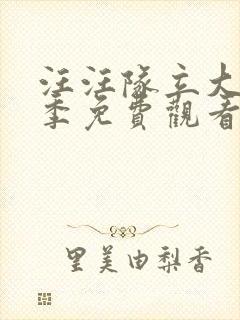 汪汪隊立大
季免費觀看
里美由梨香